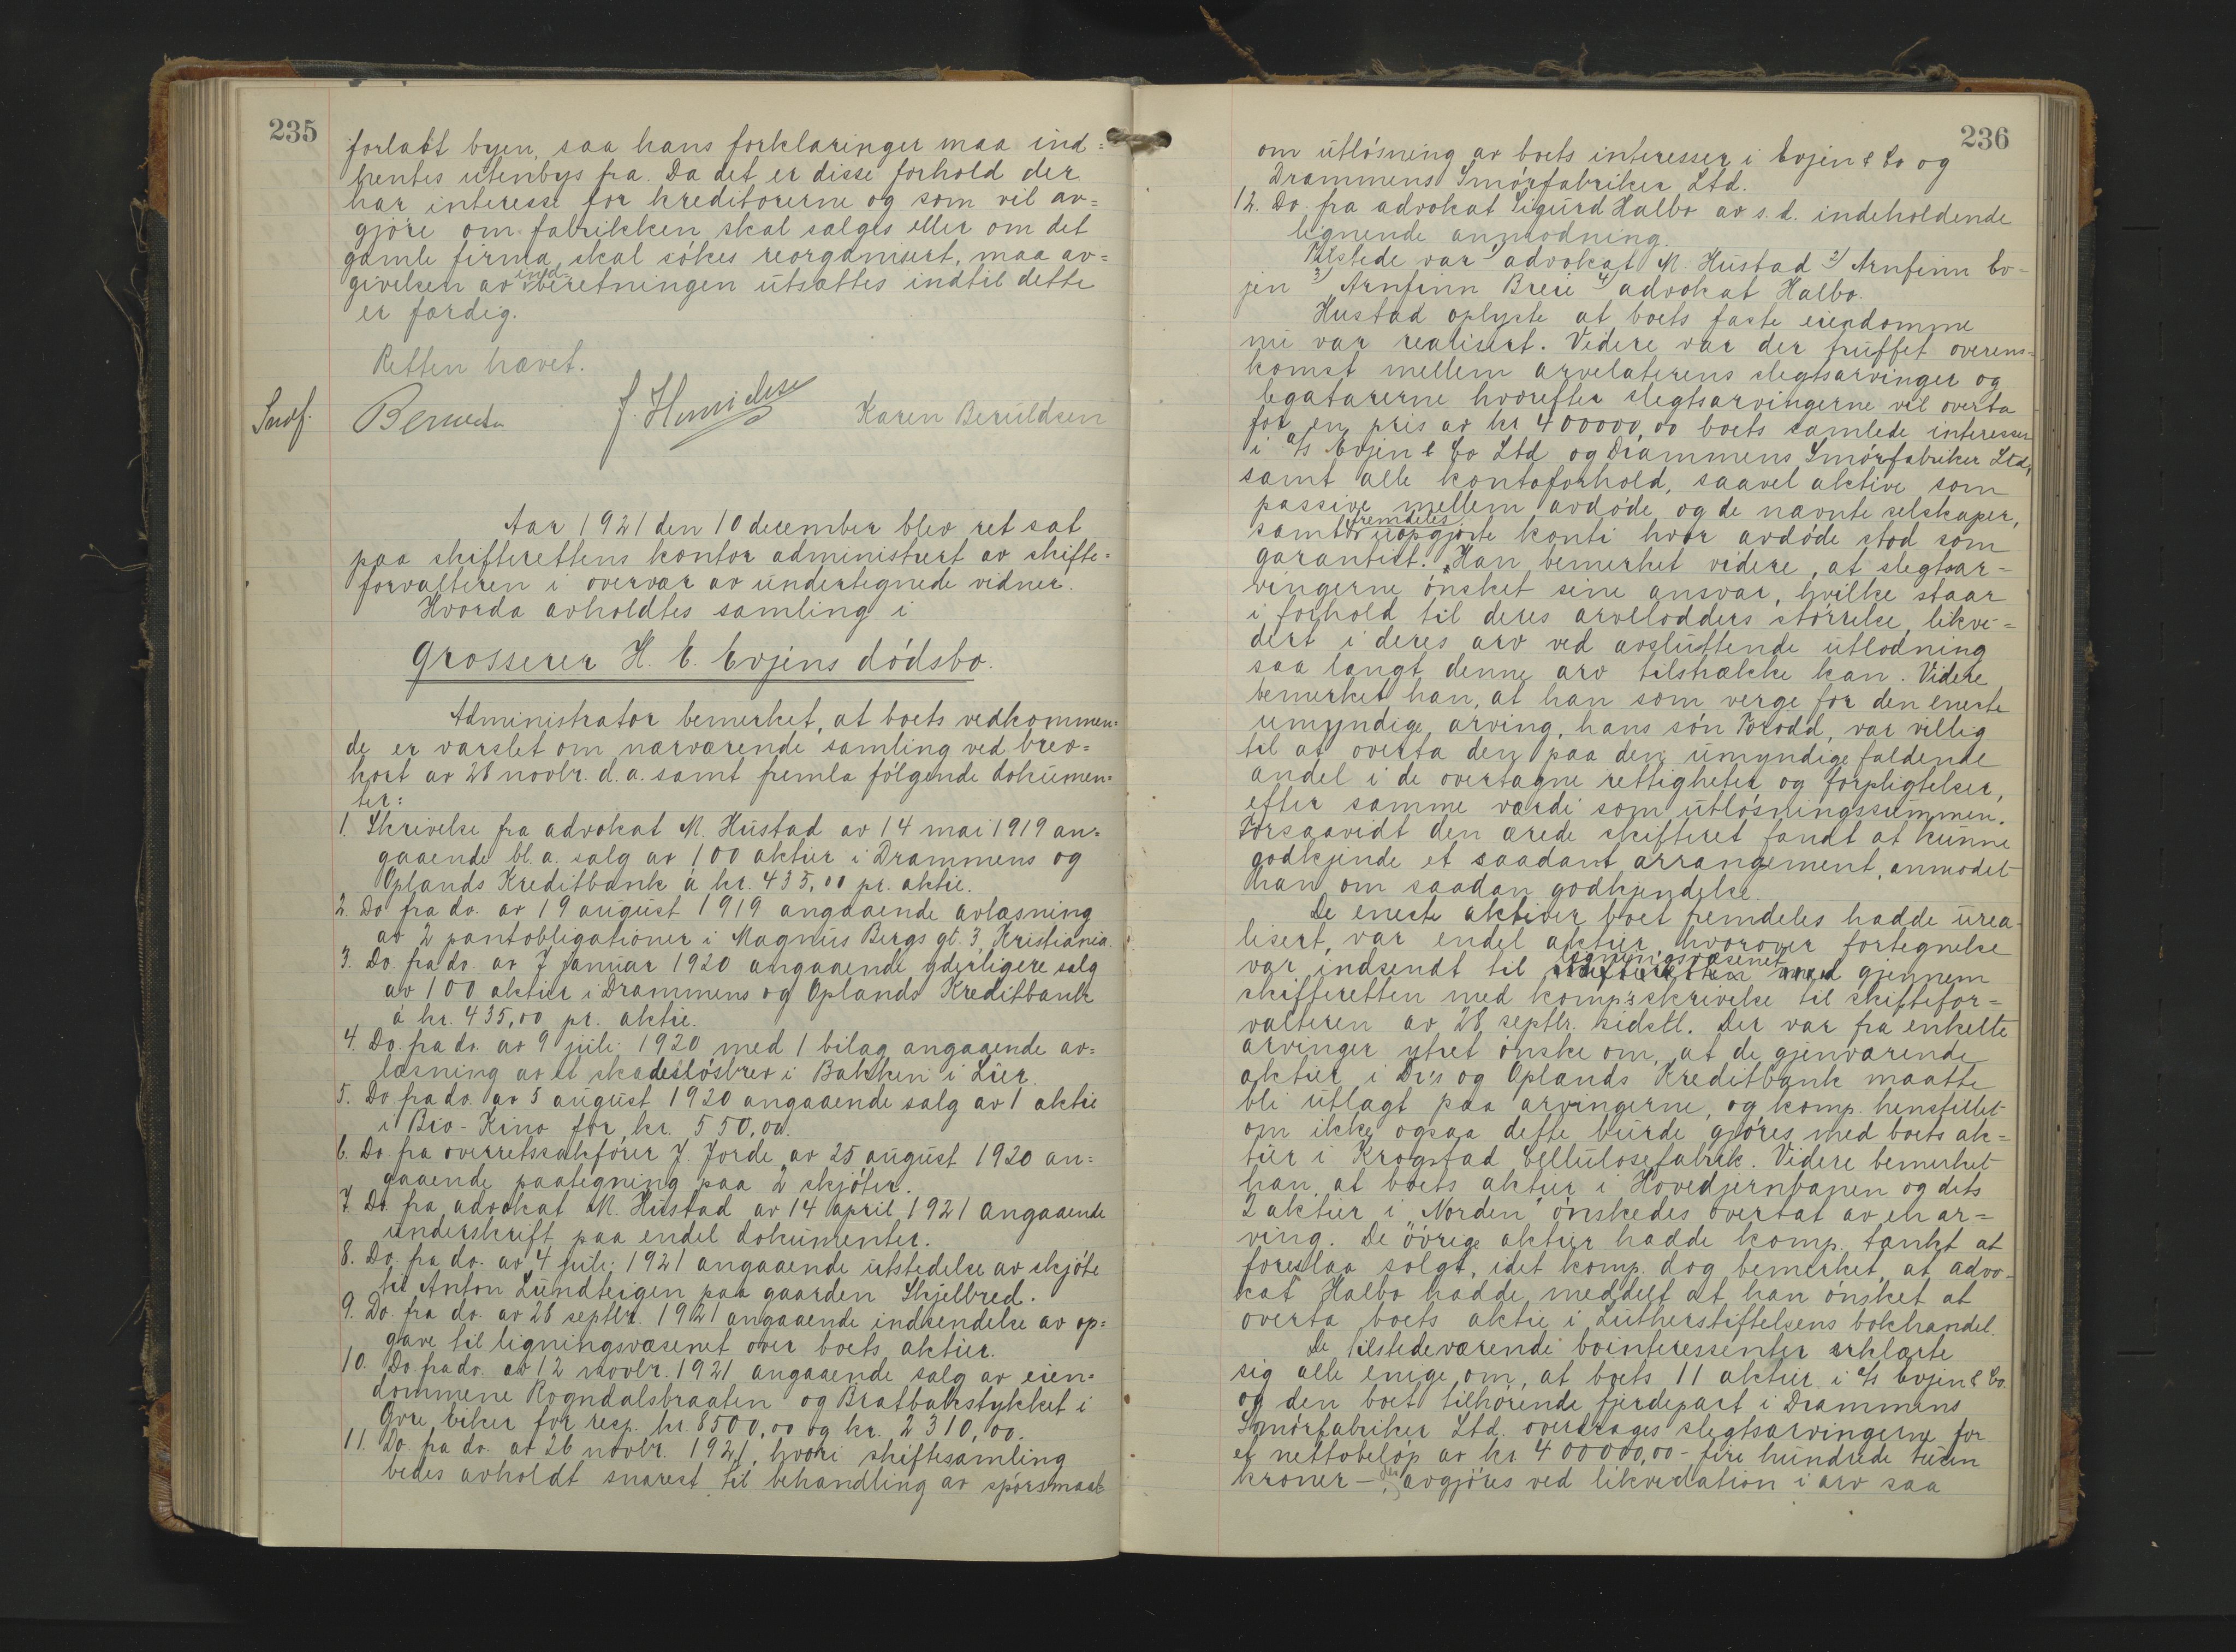 235
forlatt byen, saa hans forklaringer maa ind=
hentes utenbys fra. Da det er disse forhold der
har interesse for kreditorerne og som vil av=
gjøre om fabrikken skal sælges eller om det
gamle firma skal søkes reorganisert, maa av=
givelsen av indberetningen utsættes indtil dette
er færdig.
Retten hævet.
Karen Beruldsen
Aar 1921 den 10 december blev ret sat
paa skifterettens kontor administrert av skifte=
forvalteren i overvær av undertegnede vidner.
Hvorda avholdtes samling i
Grosserer H. E. Evjens dødsbo.
Administrator bemerket, at boets vedkommen=
de er varslet om nærværende samling ved brev=
kort av 28 novbr. d.a. samt fremla følgende dokumen=
ter:
1. Skrivelse fra advokat M. Hustad av 14 mai 1919 an=
gaaende bl.a. salg av 100 aktier i Drammens og
Oplands Kreditbank à kr. 435,00 pr. aktie.
2. Do fra do. av 19 august 1919 angaaende avlæsning
av 2 pantobligationer i Magnus Bergs gt. 3, Kristiania.
3. Do. fra do. av 7 januar 1920 angaaende yderligere salg
av 100 aktier i Drammens og Oplands Kreditbank
à kr. 435,00 pr. aktie.
4. Do. fra do. av 9 juli 1920 med 1 bilag angaaende av=
læsning av et skadesløsbrev i Bakken i Lier.
5. Do. fra do. av 5 august 1920 angaaende salg av 1 aktie
i Bio-Kino for kr. 550,00.
6. Do. fra overretssakfører J. Jorde av 25 august 1920 an=
gaaende paategning paa 2 skjøter.
7. Do. fra advokat M. Hustad av 14 april 1921 angaaende
underskrift paa endel dokumenter.
8. Do. fra do. av 4 juli 1921 angaaende utstedelse av skjøte
til Anton Lundteigen paa gaarden Skjelbred.
9. Do. fra do. av 28 septbr. 1921 angaaende indsendelse av op=
gave til ligningsvæsenet over boets aktier.
10. Do. fra do. av 12 novbr. 1921 angaaende salg av eien=
dommene Rogndalsbraaten og Bratbakstykket i
Øvre Eiker for resp. kr. 8500,00 og kr. 2310,00.
11. Do. fra do. av 26 novbr. 1921, hvori skiftesamling
bedes avholdt snarest til behandling av spørsmaal
236
om utløsning av boets interesser i Evjen & Co og
Drammens Smørfabriker Ltd.
12. Do. fra advokat Sigurd Halbo av s.d. indeholdende
lignende anmodning.
Tilstede var 1) advokat M. Hustad 2) Arnfinn Ev-
jen 3) Arnfinn Breie 4) advokat Halbo.
Hustad oplyste at boets faste eiendomme
nu var realisert. Videre var der truffet overens-
komst mellem arvelaterens slegtsarvinger og
legatarerne hvorefter slegtsarvingerne vil overta
for en pris av kr 400000,00 boets samlede interesser
i A/s Evjen & Co Ltd og Drammens Smørfabriker Ltd,
samt alle kontoforhold, saavel aktive som
passive mellem avdøde og de nævnte selskaper,
samt fremdeles uopgjorte konti hvor avdøde stod som
garantist. Han bemerket videre, at slegtsar-
vingerne ønsket sine ansvar, hvilke staar
i forhold til deres arvelodders størrelse, likvi-
dert i deres arv ved avsluttende utlodning
saa langt denne arv tilstrække kan. Videre
bemerket han, at han som verge for den eneste
umyndige arving, hans søn Brodd, var villig
til at overta den paa den umyndige faldende
andel i de overtagne rettigheter og forpligtelser,
efter samme værdi som utløsningssummen.
Forsaavidt den ærede skifteret fandt at kunne
godkjende et saadant arrangement, anmodet
han om saadan godkjendelse.
De eneste aktiver boet fremdeles hadde urea-
lisert, var endel aktier, hvorover fortegnelse
var indsendt til ligningsvæsenet gjennem
skifteretten med komp's skrivelse til skiftefor=
valteren av 28 septbr. sidstl. Der var fra enkelte
arvinger ytret ønske om, at de gjenværende
aktier i Dr's og Oplands Kreditbank maatte
bli utlagt paa arvingerne, og komp. henstillet
om ikke ogsaa dette burde gjøres med boets ak=
tier i Krogstad Cellulosefabrik. Videre bemerket
han, at boets aktier i Hovedjernbanen og dets
2 aktier i "Norden" ønskedes overtat av en ar=
ving. De øvrige aktier hadde komp. tænkt at
foreslaa solgt, idet komp. dog bemerket, at advo-
kat Halbo hadde meddelt at han ønsket at
overta boets aktie i Lutherstiftelsens bokhandel.
De tilstedeværende bointeressenter erklærte
sig alle enige om, at boets 11 aktier i A/s Evjen & Co.
og den boet tilhørende fjerdepart i Drammens
Smørfabriker Ltd. overdrages slegtsarvingerne for
et nettobeløp av kr 400000,00 - fire hundrede tusen
kroner - der avgjøres ved likvidation i arv saa